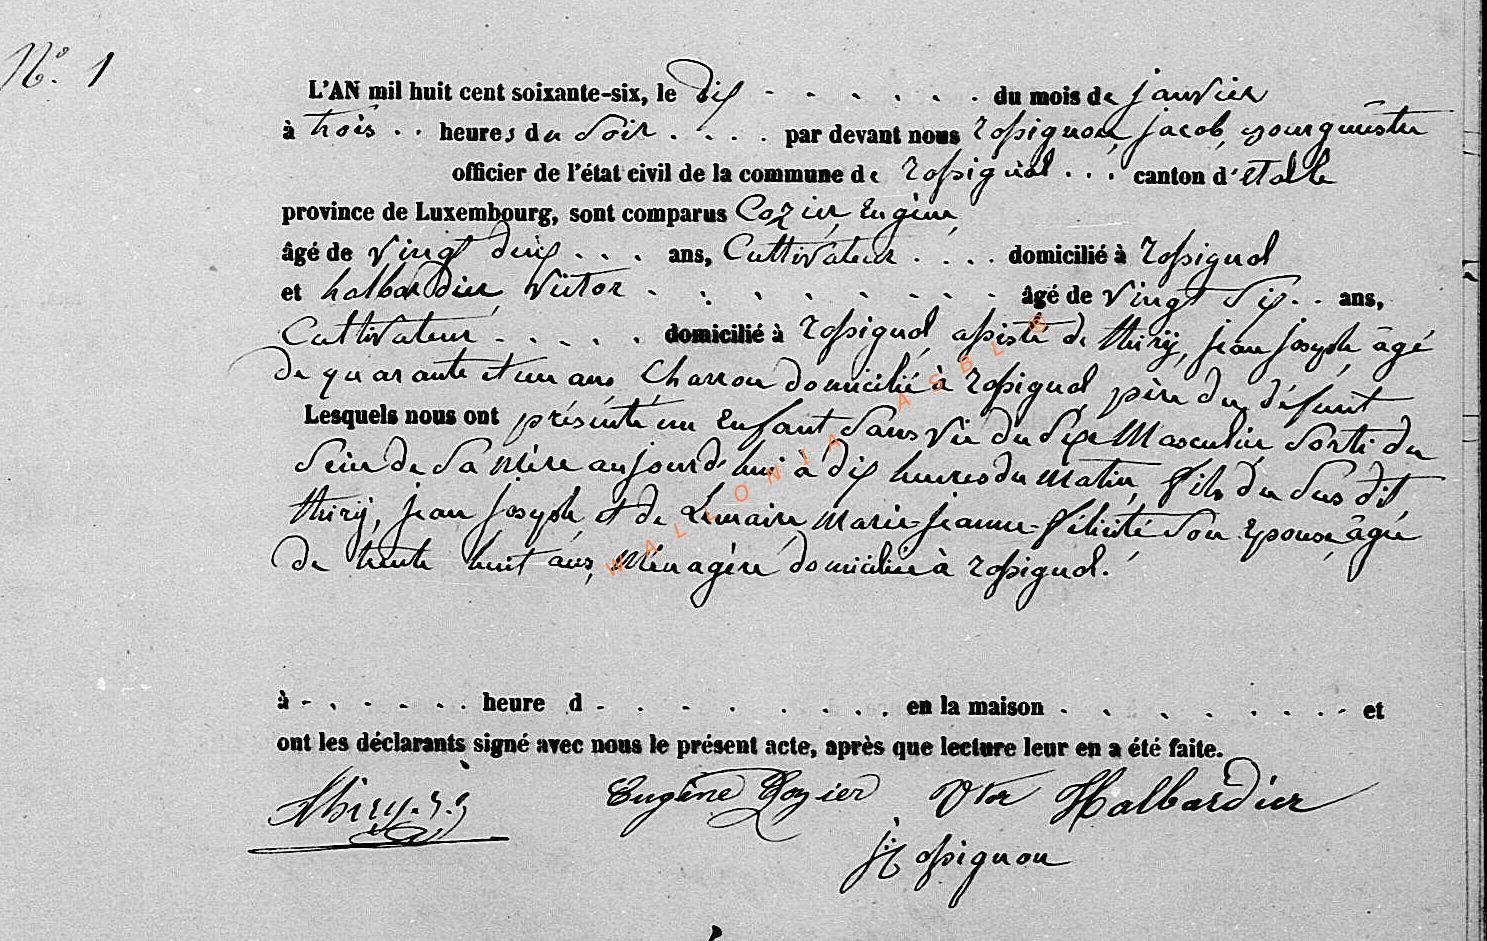 N° 1
L'AN mil huit cent soixante-six, le dix - - - - - - du mois de janvier
à trois . . heures du Soir . . . . par devant nous rossignon, jacob, bourguestre
officier de l'état civil de la commune de rossignol . . . canton d'étalle
province de Luxembourg, sont comparus Cozier, Eugène,
âgé de vingt dix . . . ans, Cultivateur . . . . domicilié à rossignol
et halbardier, Victor . . . . . . . . âgé de vingt Six . . ans,
Cultivateur . . . . . domicilié à rossignol, assisté de thiry, jean joseph, âgé
de quarante et un ans Charron domicilié à rossignol, père du défunt
Lesquels nous ont présenté un Enfant Sans vie du Sexe Masculin, Sorti du
Sein de Sa Mère aujourd'hui à dix heures du Matin, fils du Sus dit
thiry, jean joseph et de Lemaire Marie-jeanne-félicité Son Epouse, âgée
de trente huit ans, Ménagère domiciliée à rossignol.
WALLONIA ASBL ©
à - . . . . . heure d - . . . . . . . en la maison . . . . . . . . et
ont les déclarants signé avec nous le présent acte, après que lecture leur en a été faite.
Thiry. J. J Eugène Cozier Vtor Halbardier
j: Rossignon